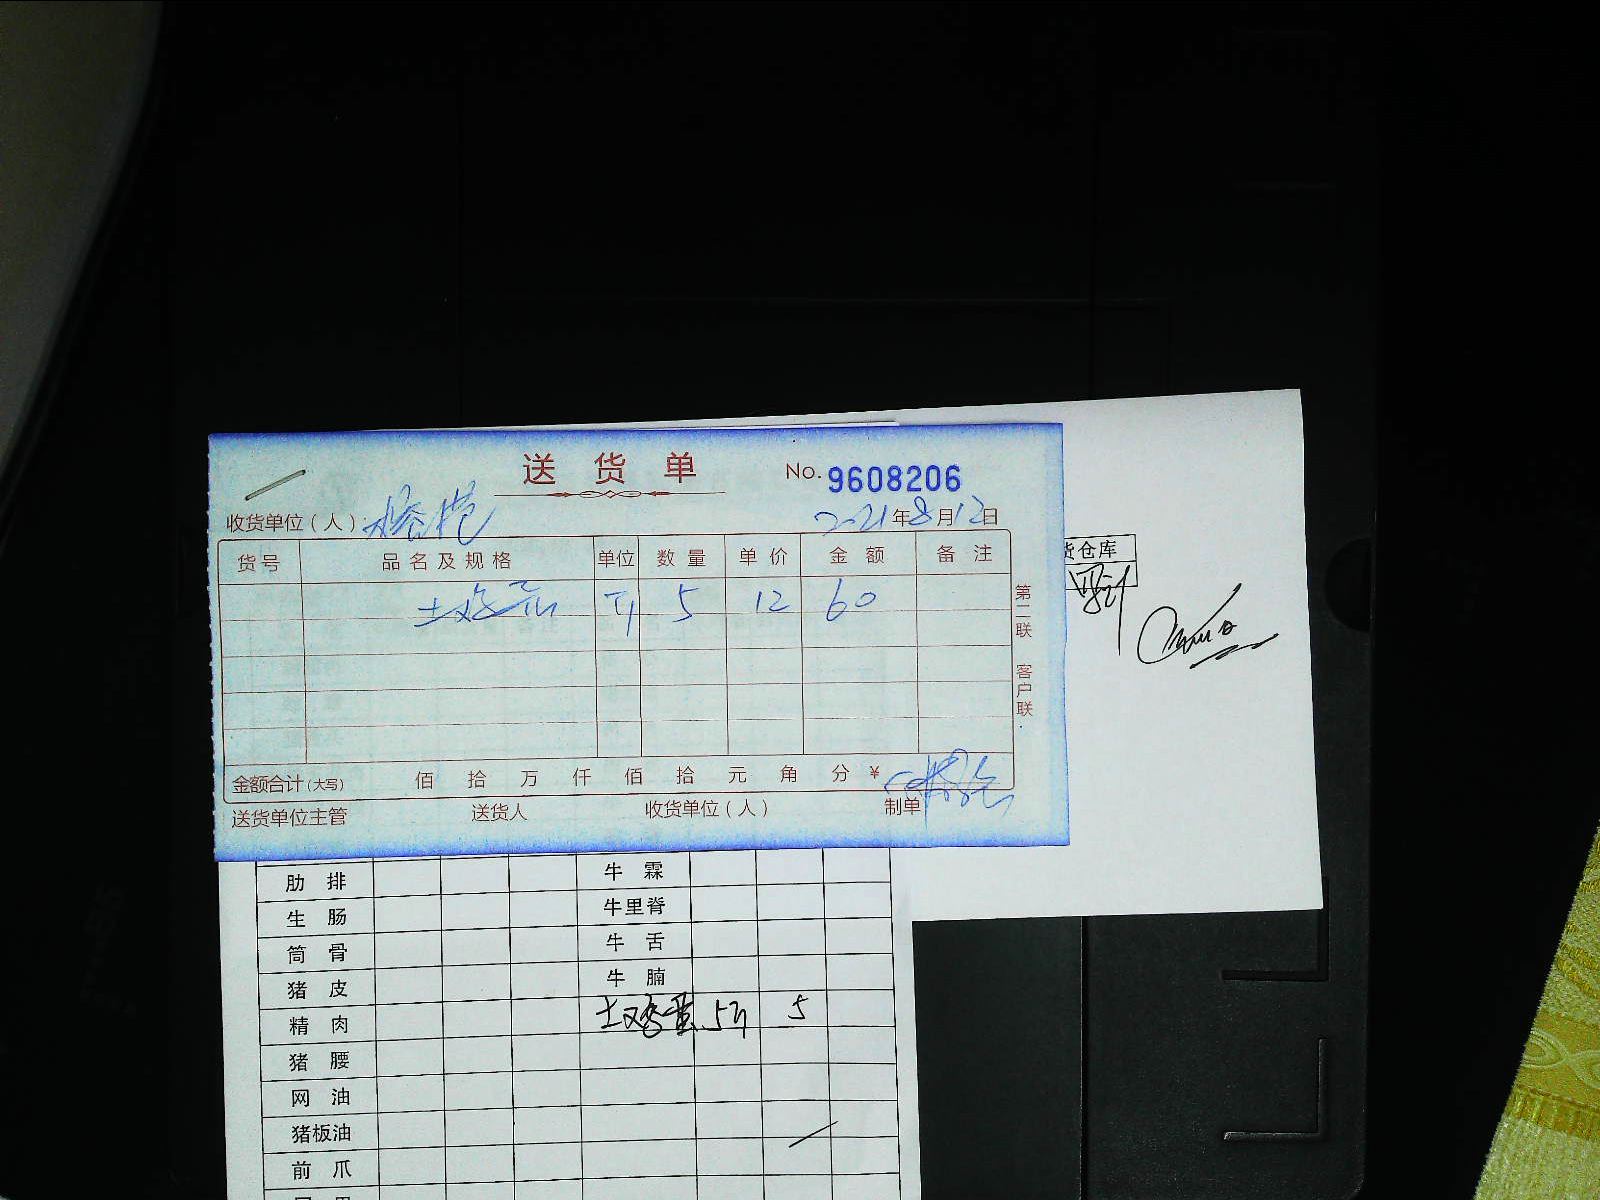 送货单 No. 9608206
收货单位（人）：
2021年8月12日
货号 品名及规格 单位 数量 单价 金额 备注
土鸡蛋 斤 5 12 60
第二联 客户联
金额合计（大写） 佰 拾 万 仟 佰 拾 元 角 分 ¥
送货单位主管 送货人 收货单位（人） 制单
货仓库
肋排 牛霖
生肠 牛里脊
筒骨 牛舌
猪皮 牛腩
精肉 土鸡蛋 5斤 5
猪腰
网油
猪板油
前爪